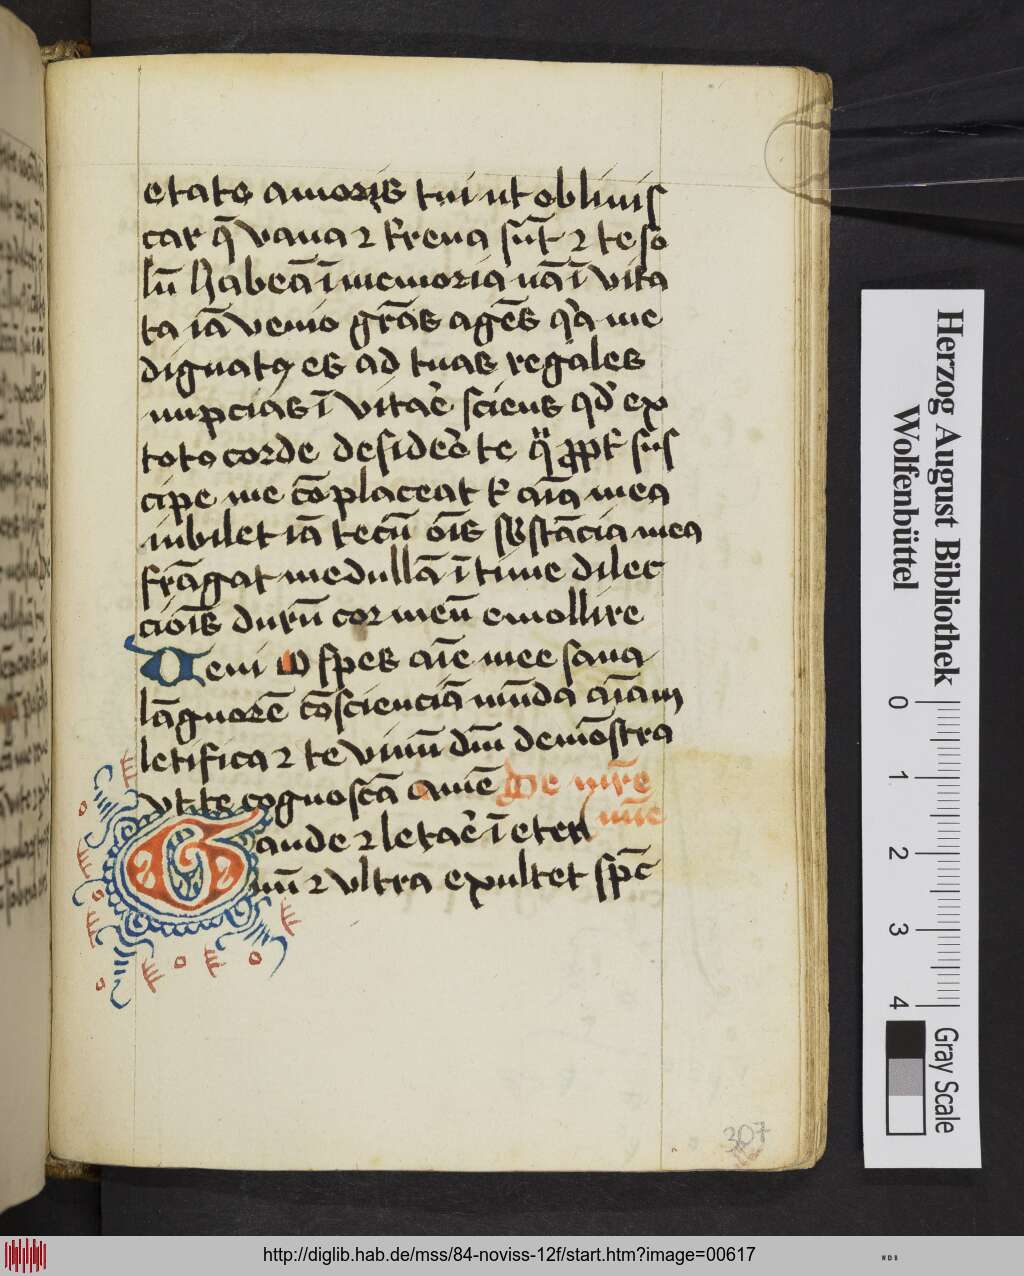 etate amoris tui ut oblivis
car q̄ vana ⁊ t̄rena sūt ⁊ te so
lū habeā ī memoria nā ī vita
ta iā venio gr̄as agēs qͥa me
dignatꝰ es ad tuas regales
nupcias ī vitaē sciens qd̓ ex
toto corde desideō te ꝓpt̄ sus
cipe me cōplaceat t̄ aīa mea
iubilet iā tecū oīs sb̄stācia mea
frāgat medullā ītime dilec
ciōīs durū cor meū emollire
Veni o spes aīe mee sana
lāguorē cōscienciā mūda aīam
letifica ⁊ te vivū dīm demōstra
vt te cognoscā amē De nr̄e
mīe
Gaude ⁊ letaē ī eter
nū ⁊ ultra exultet sp̄c
307
Herzog August Bibliothek
Wolfenbüttel
0 1 2 3 4
Gray Scale
http://diglib.hab.de/mss/84-noviss-12f/start.htm?image=00617